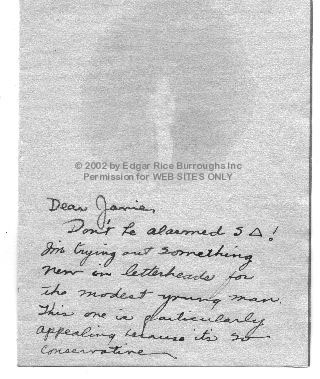 © 2002 by Edgar Rice Burroughs Inc
Permission for WEB SITES ONLY
Dear Jamie,
Don't be alarmed S △!
I'm trying out something
new in letterheads for
the modest young man.
This one is particularly
appealing because its so
conservative